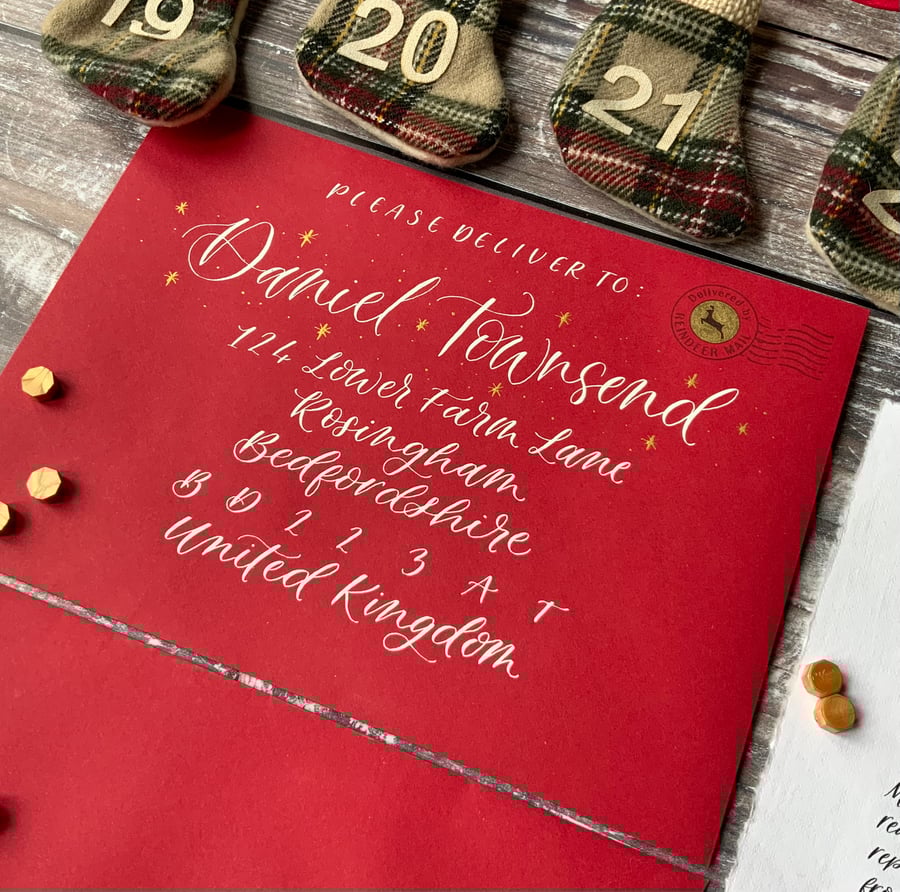 19
20
21
PLEASE DELIVER TO:
Daniel Townsend
124 Lower Farm Lane
Rosingham
Bedfordshire
BD22 3AT
United Kingdom
Delivered by
REINDEER MAIL